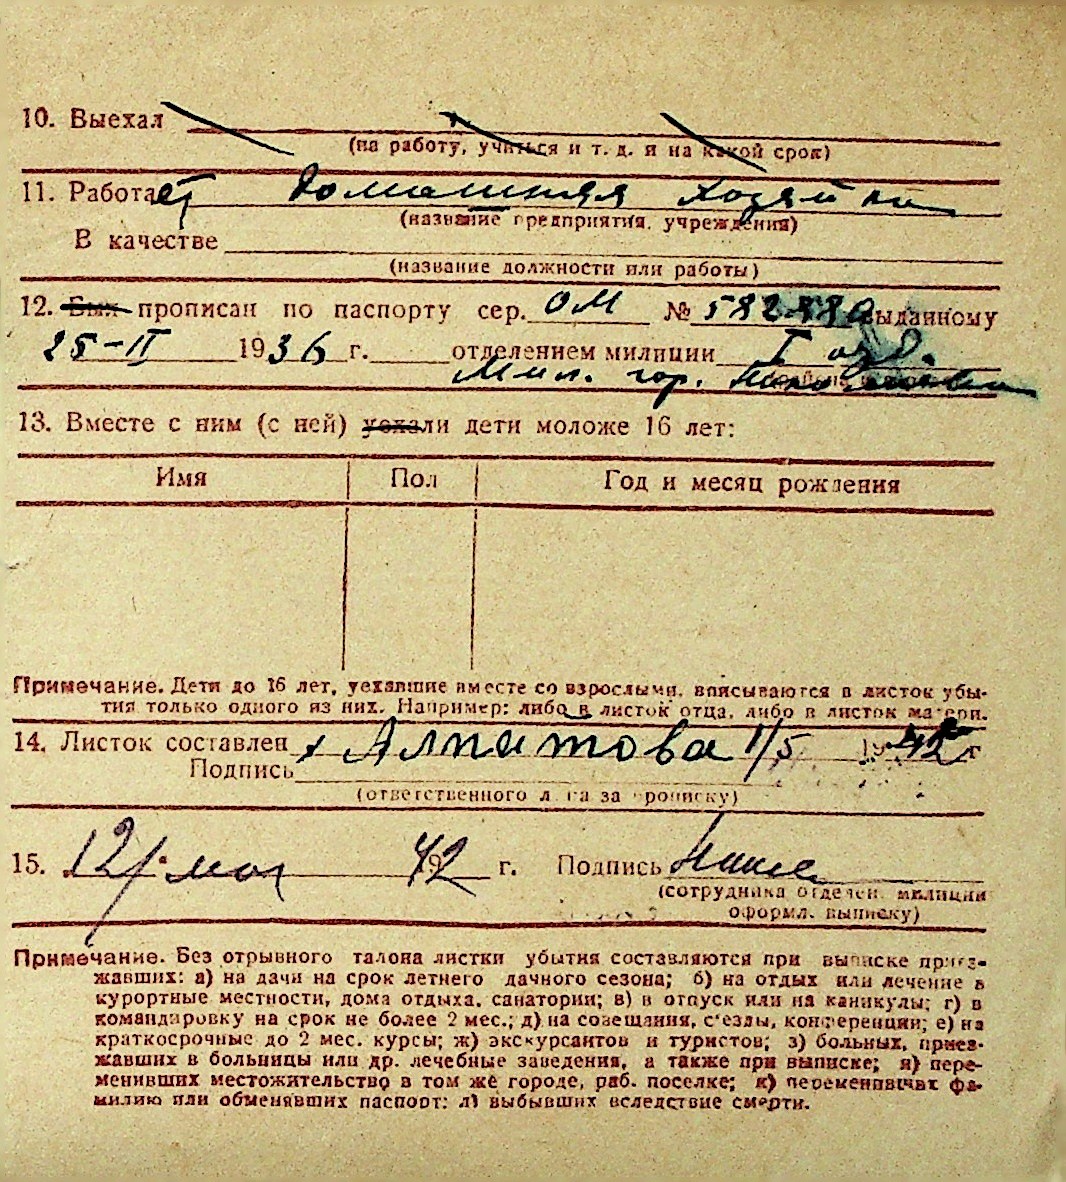 10. Выехал
(на работу, учиться и т. д. и на какой срок)
11. Работает домашняя хозяйка
(название предприятия, учреждения)
В качестве
(название должности или работы)
12. Был прописан по паспорту сер. ОМ № выданному
25-II 1936 г. отделением милиции I отд.
Мил. гор.
13. Вместе с ним (с ней) уехали дети моложе 16 лет:
Имя Пол Год и месяц рождения
Примечание. Дети до 16 лет, уехавшие вместе со взрослыми, вписываются в листок убы-
тия только одного из них. Например: либо в листок отца, либо в листок матери.
14. Листок составлен Алпатова 1/5 1942 г
Подпись
(ответственного лица за прописку)
15. 12/ мая 42 г. Подпись
(сотрудника отделен. милиции
оформл. выписку)
Примечание. Без отрывного талона листки убытия составляются при выписке приез-
жавших: а) на дачи на срок летнего дачного сезона; б) на отдых или лечение в
курортные местности, дома отдыха, санатории; в) в отпуск или на каникулы; г) в
командировку на срок не более 2 мес.; д) на совещания, с'езды, конференции; е) на
краткосрочные до 2 мес. курсы; ж) экскурсантов и туристов; з) больных, приез-
жавших в больницы или др. лечебные заведения, а также при выписке; и) пере-
менивших местожительство в том же городе, раб. поселке; к) переменивших фа-
милию или обменявших паспорт; л) выбывших вследствие смерти.